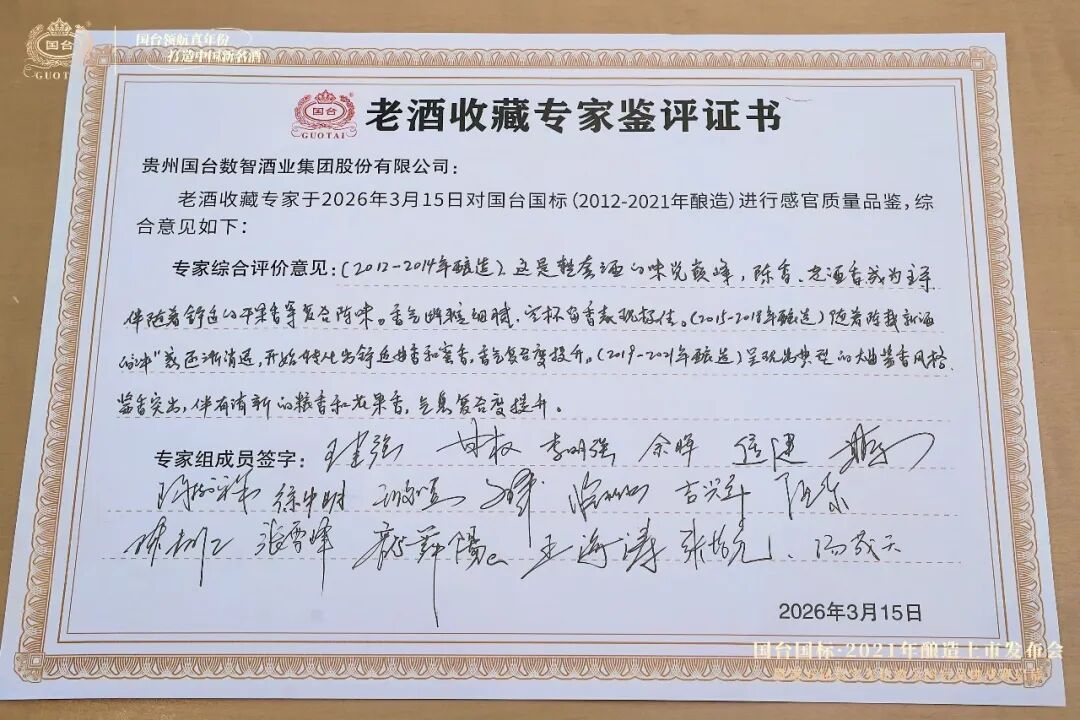 国台
GUOTAI
国台领航真年份
打造中国新名酒
国台
GUOTAI
老酒收藏专家鉴评证书
贵州国台数智酒业集团股份有限公司：
老酒收藏专家于2026年3月15日对国台国标（2012-2021年酿造）进行感官质量品鉴，综
合意见如下：
专家综合评价意见：（2012-2014年酿造）这是整套酒的味觉巅峰，陈香、老酒香成为主导
伴随着舒适的干果香等复合陈味。香气幽雅细腻，空杯留香表现极佳。（2015-2018年酿造）随着陈载新酒
的"冲"感逐渐消退，开始转化出舒适曲香和蜜香。香气复合度提升。（2019-2021年酿造）呈现出典型的大曲酱香风格
酱香突出，伴有清新的粮香和花果香，气息复合度提升。
专家组成员签字：李明强 余晖
徐中明
张雪峰 王海涛
2026年3月15日
国台国标·2021年酿造上市发布会